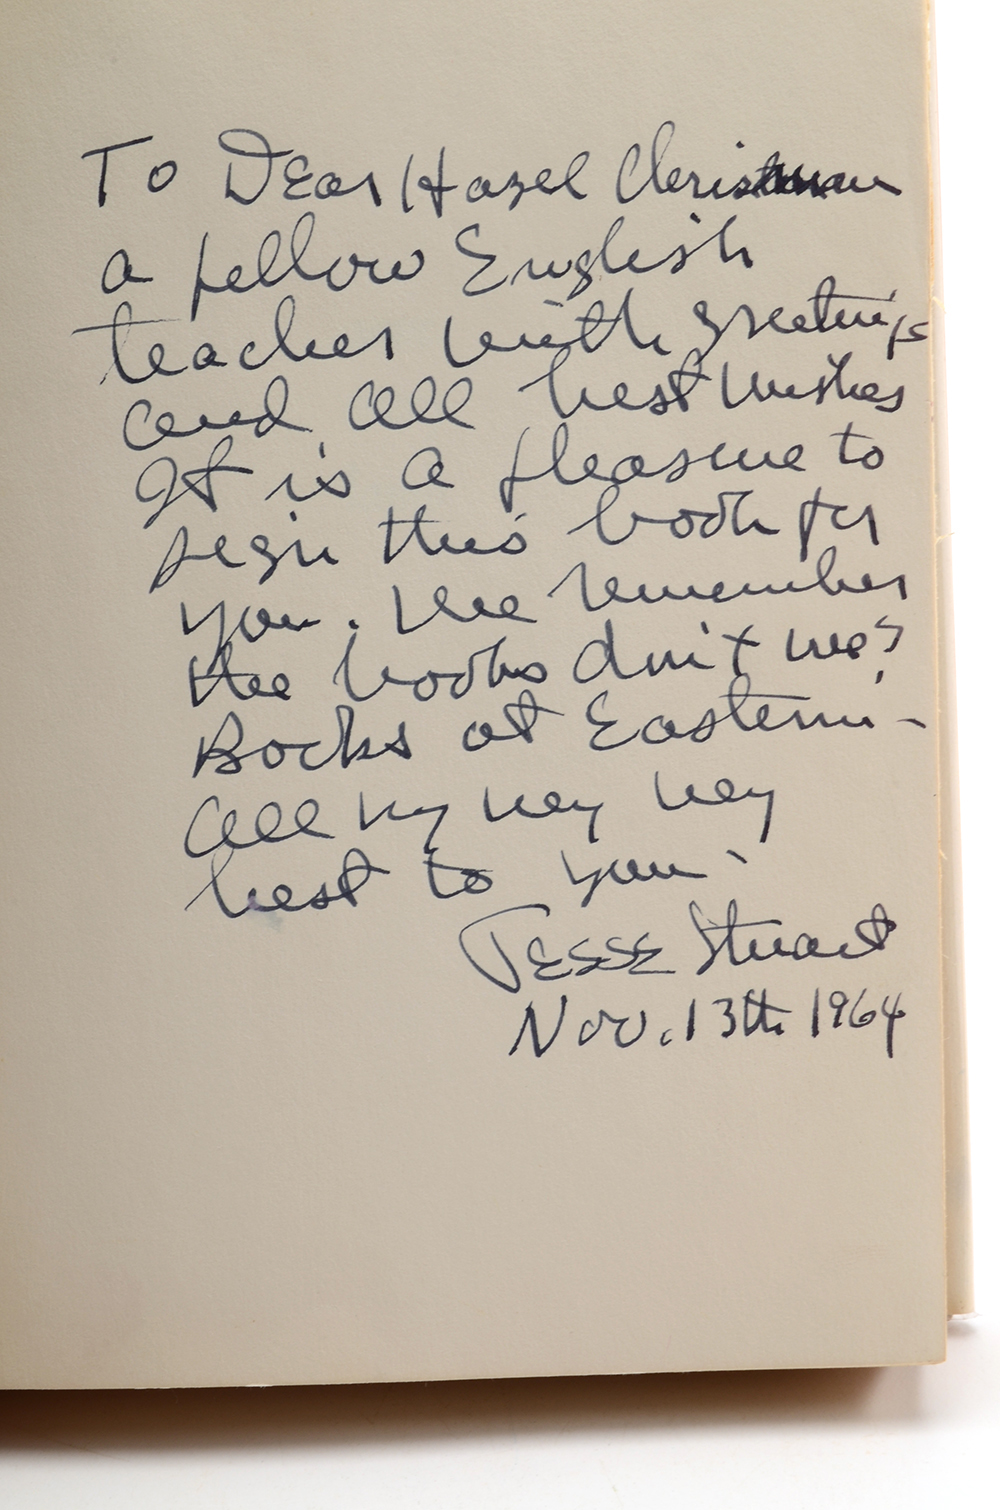 To Dear Hazel Christman
a fellow English
teacher with greetings
and all best wishes
It is a pleasure to
sign this book for
you. We remember
the books don't we?
Books at Eastern -
All my very very
best to you -
Jesse Stuart
Nov. 13th 1964